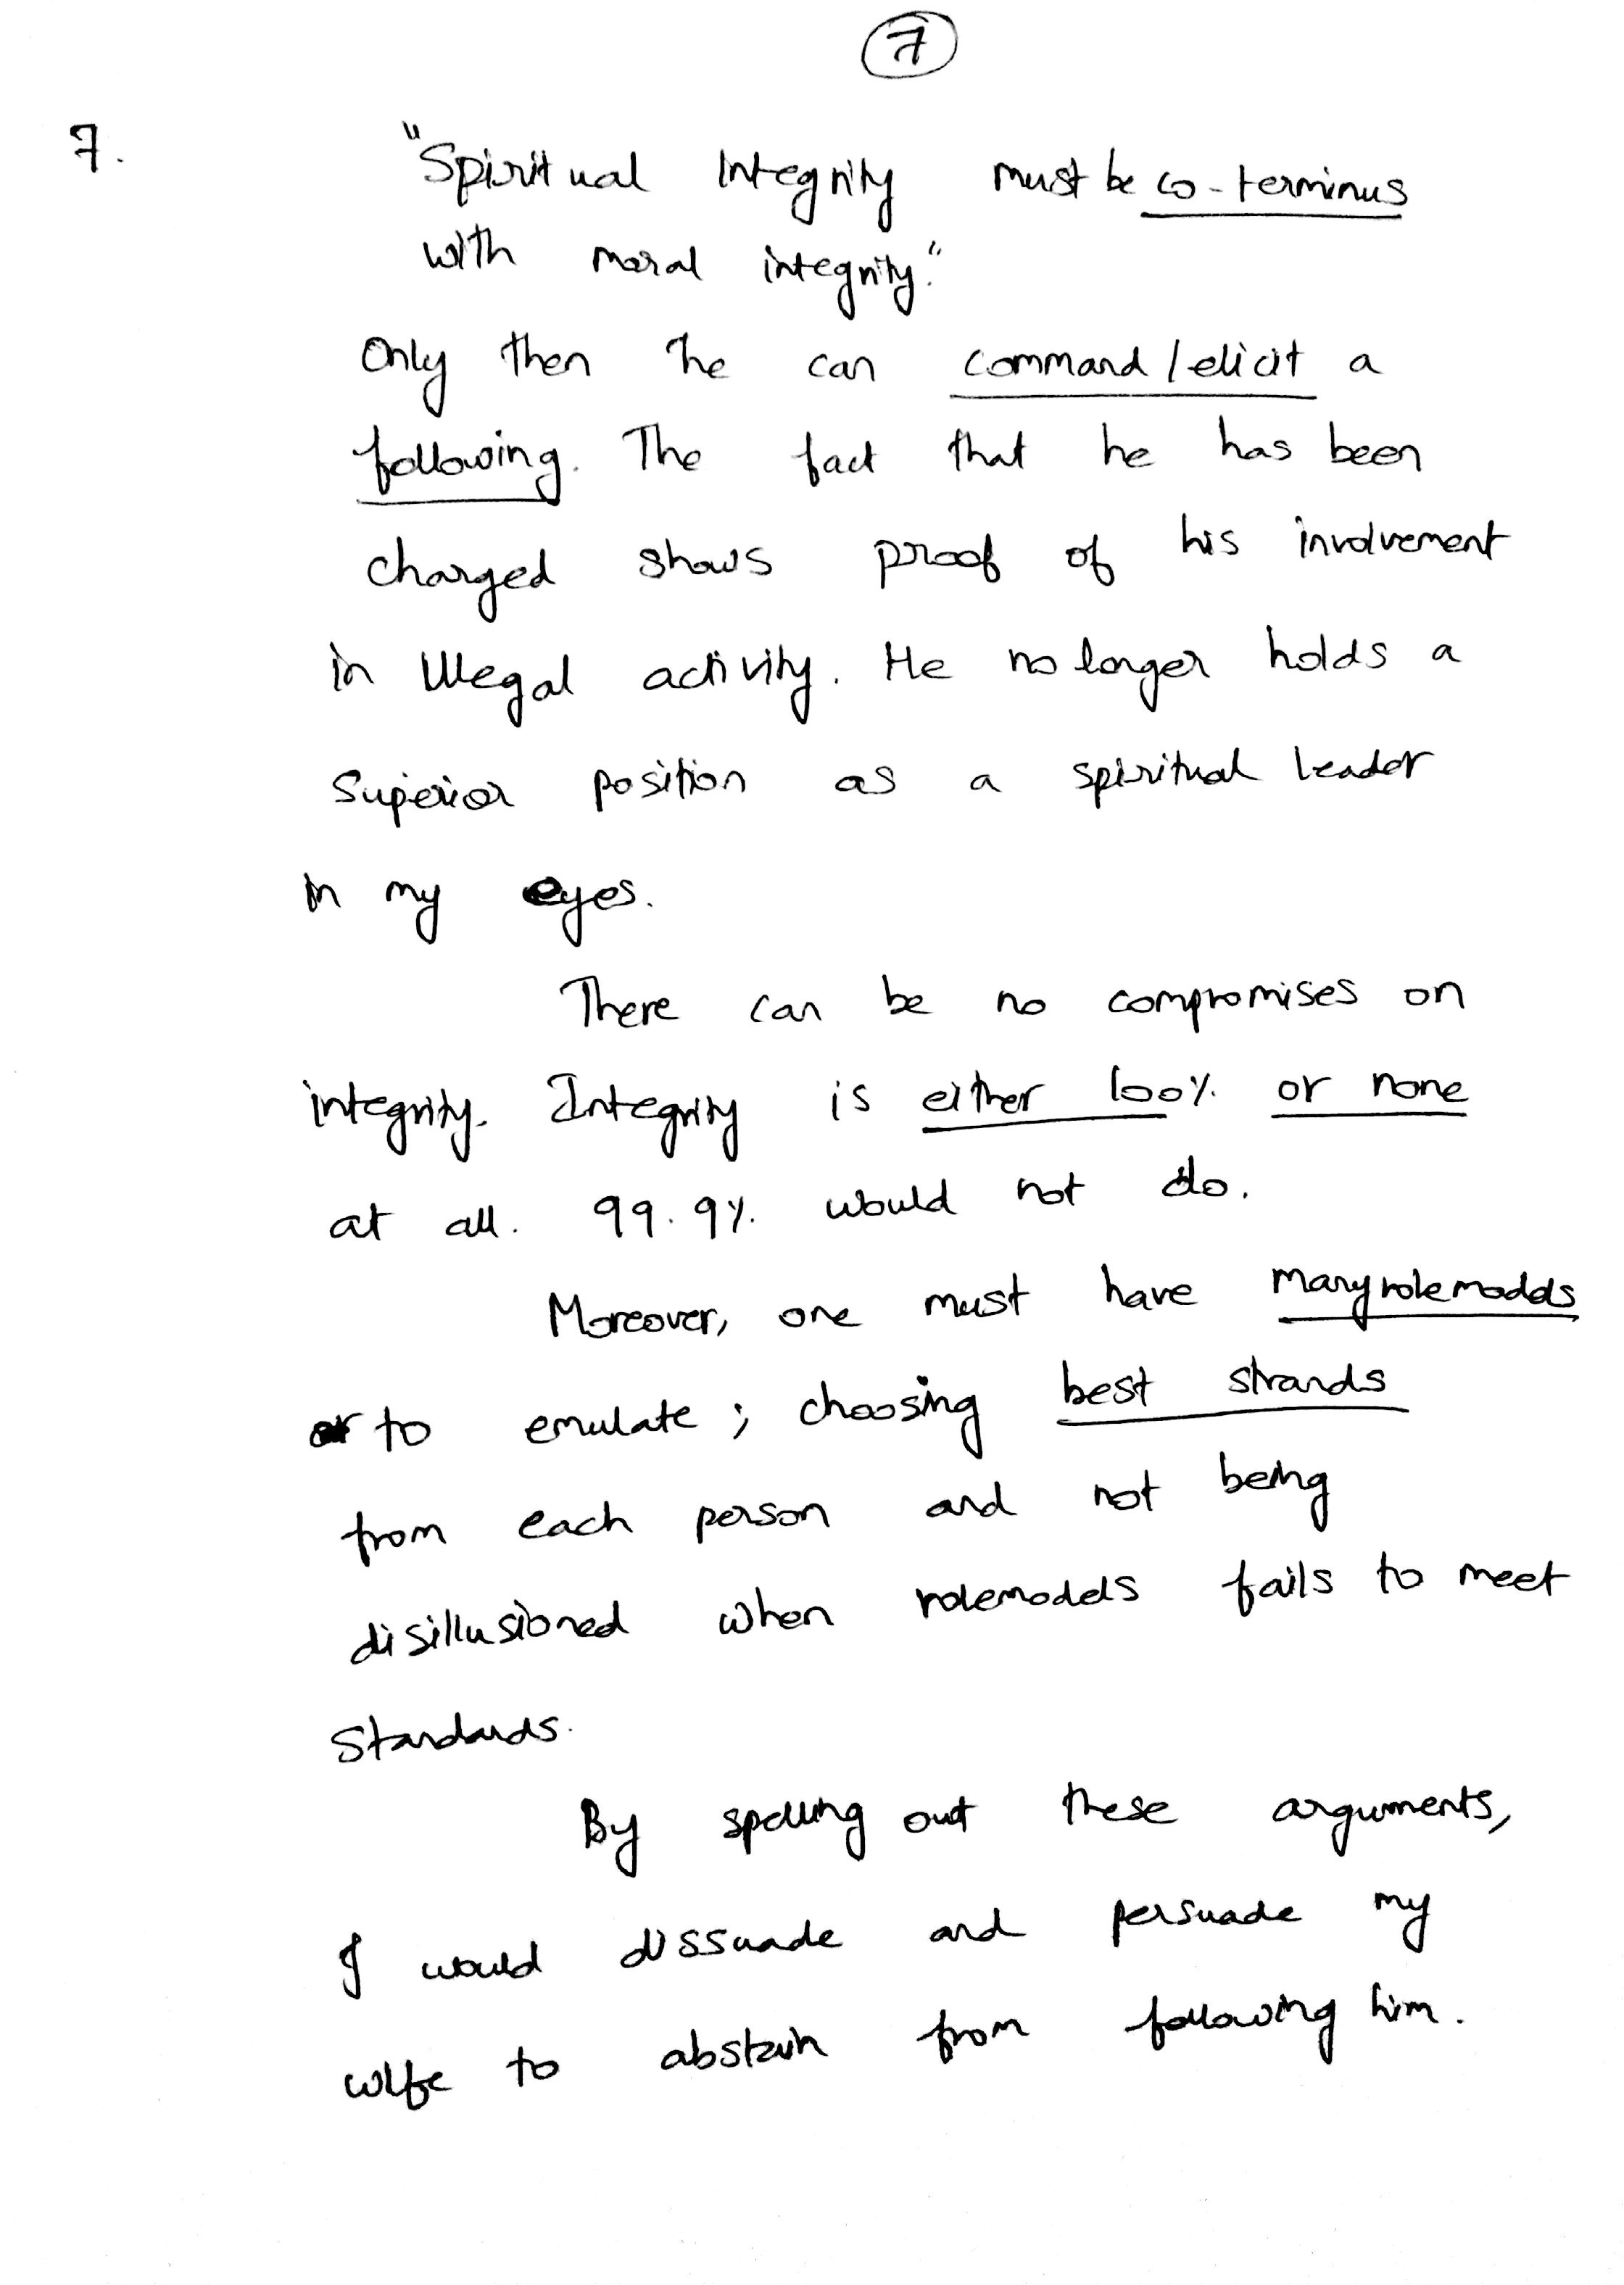 7
7.
"Spiritual Integrity must be co-terminus
with moral integrity."
Only then he can command/elicit a
following. The fact that he has been
charged shows proof of his involvement
in illegal activity. He no longer holds a
superior position as a spiritual leader
in my eyes.
There can be no compromises on
integrity. Integrity is either 100% or none
at all. 99.9% would not do.
Moreover, one must have many rolemodels
to emulate; choosing best strands
from each person and not being
disillusioned when rolemodels fails to meet
standards.
By spelling out these arguments,
I would dissuade and persuade my
wife to abstain from following him.